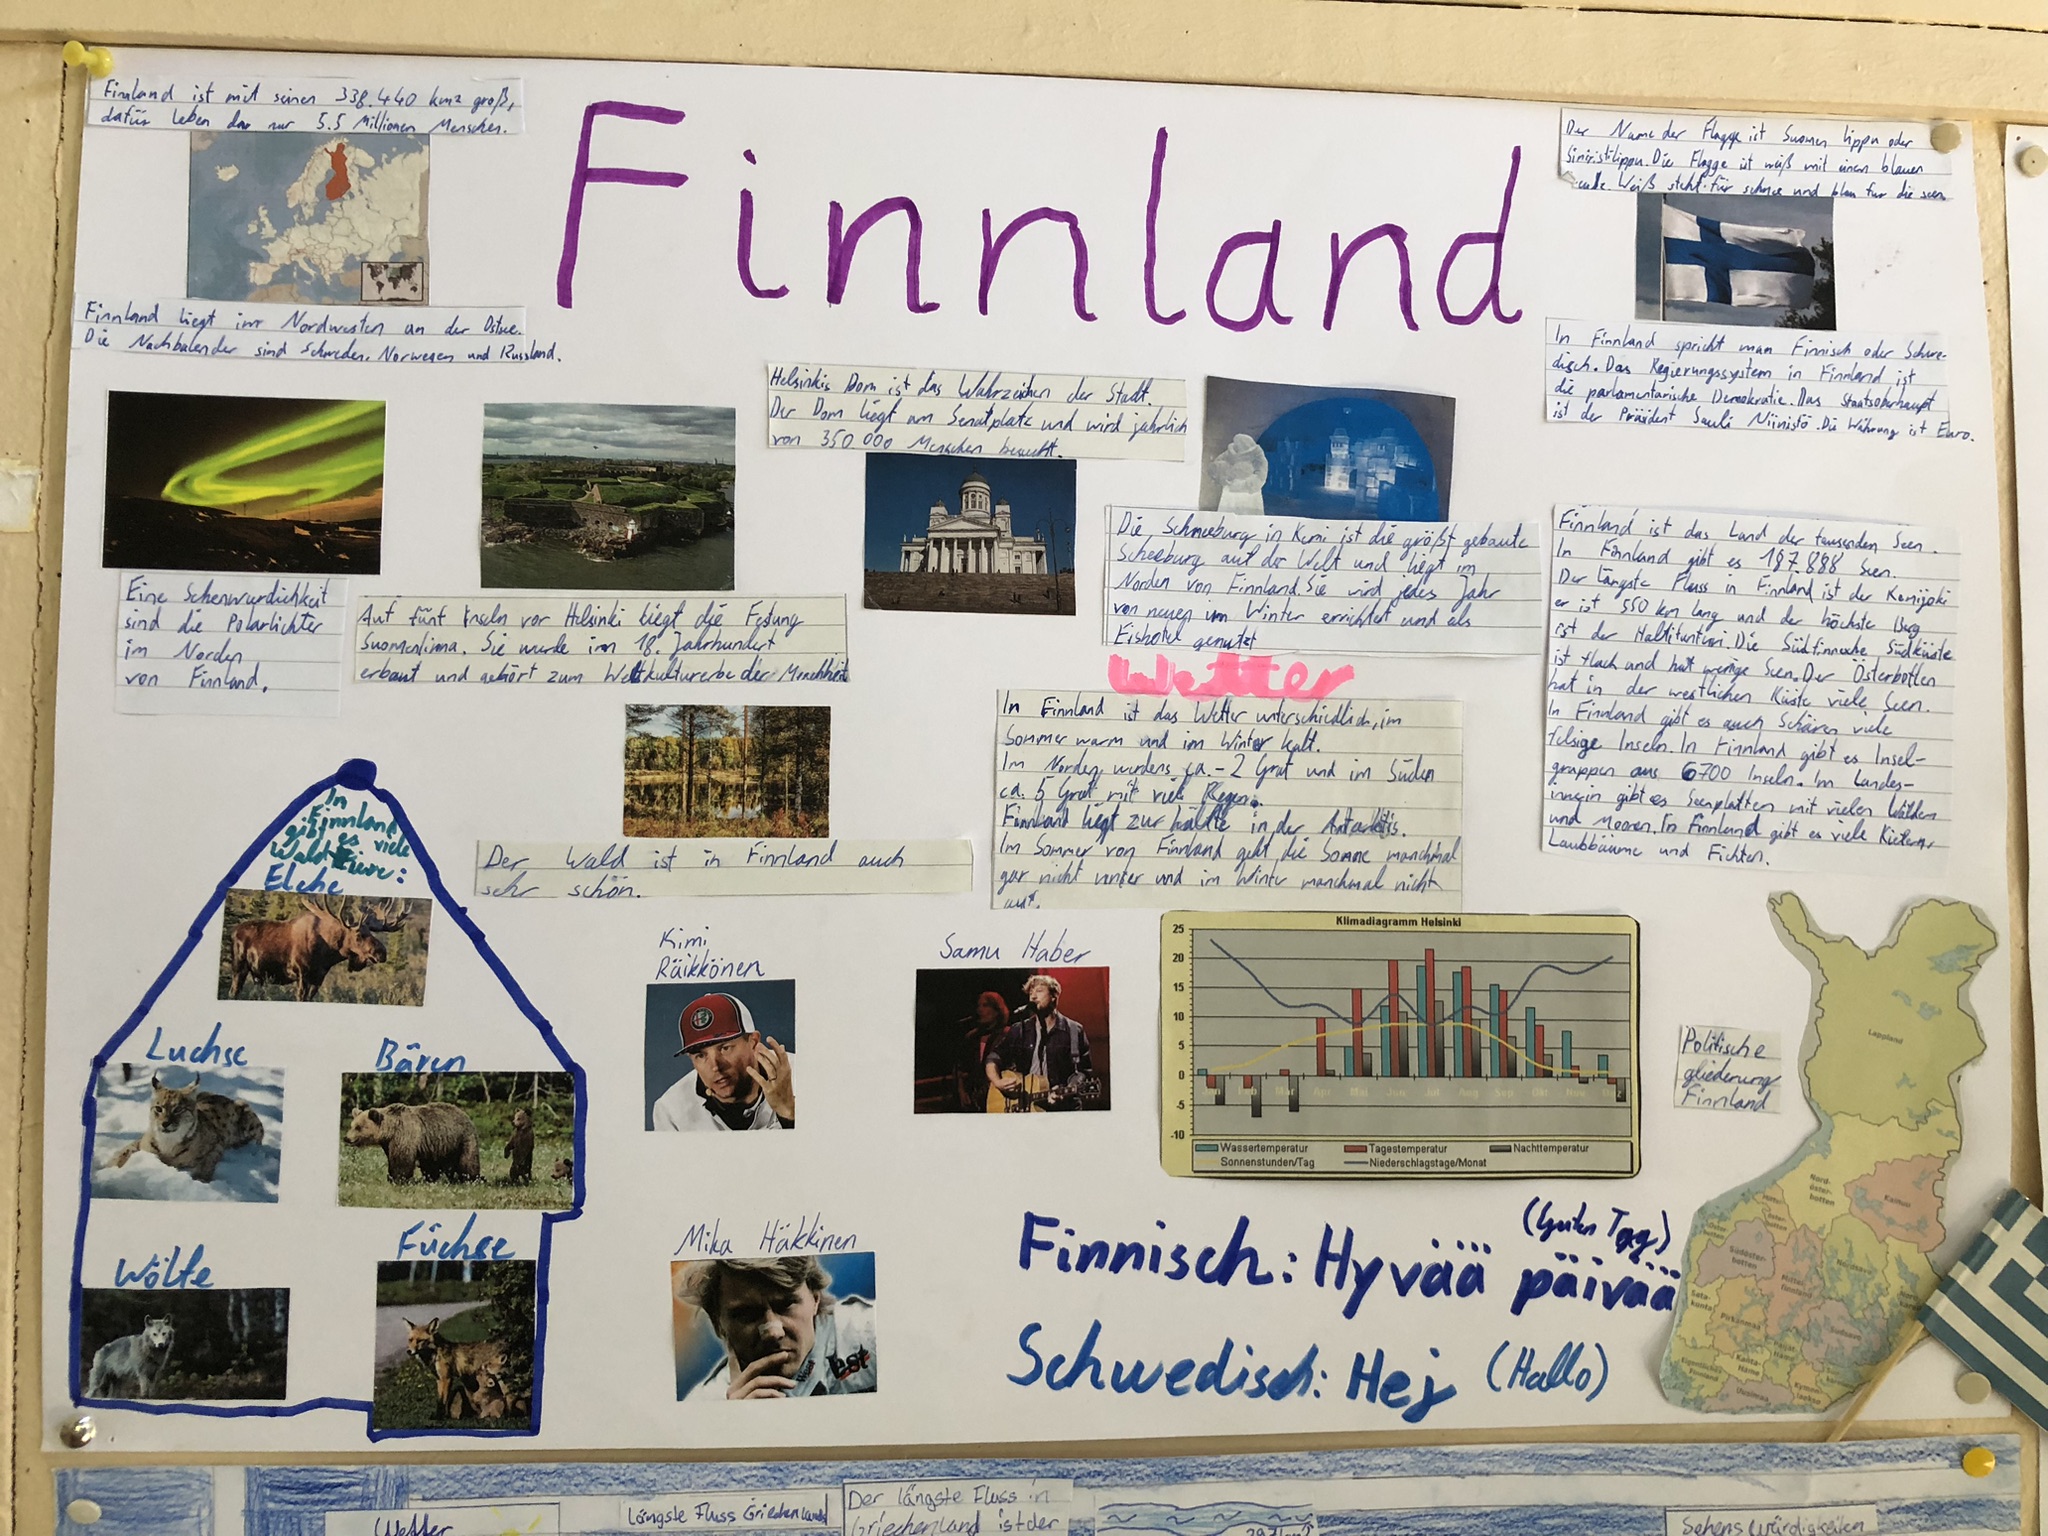 Finnland
Finnland ist mit seinen 338.440 km² groß,
dafür leben dar nur 5.5 Millionen Menschen.
Finnland liegt im Nordwesten an der Ostsee.
Die Nachbalender sind Schweden, Norwegen und Russland.
Der Name der Flagge ist Suomen lippu oder
Siniristilippu. Die Flagge ist weiß mit einen blauen
Weiß steht für schnee und blau für die seen
In Finnland spricht man Finnisch oder Schwe-
disch. Das Regierungssystem in Finnland ist
die parlamentarische Demokratie. Das Staatsoberhaupt
ist der Präsident Sauli Niinistö. Die Währung ist Euro.
Eine Sehenwürdichkeit
sind die Polarlichter
im Norden
von Finnland.
Auf fünf Inseln vor Helsinki liegt die Festung
Suomenlinna. Sie wurde im 18. Jahrhundert
erbaut und gehört zum Weltkulturerbe der Menchheit
Helsinkis Dom ist das Wahrzeichen der Stadt.
Der Dom liegt am Senatplatz und wird jährlich
von 350.000 Menschen besucht.
Die Schneeburg in Kemi ist die größt gebaute
Scheeburg auf der Welt und liegt im
Norden von Finnland. Sie wird jedes Jahr
von neuen im Winter errichtet und als
Eishotel genutzt
Finnland ist das Land der tausenden Seen.
In Finnland gibt es 187.888 Seen.
Der längste Fluss in Finnland ist der Kemijoki
er ist 550 km lang und der höchste Berg
ist der Haltitunturi. Die Südfinnische Südküste
ist flach und hat wenige Seen. Der Österbotten
hat in der westlichen Küste viele Seen.
In Finnland gibt es auch Schären viele
felsige Inseln. In Finnland gibt es Insel-
gruppen aus 6700 Inseln. Im Landes-
innein gibt es Seenplatten mit vielen Wäldern
und Mooren. In Finnland gibt es viele Kiefern,
Laubbäume und Fichten.
Wetter
In Finnland ist das Wetter unterschiedlich, im
Sommer warm und im Winter kalt.
Im Norden werdens ca. -2 Grat und im Süden
ca. 5 Grat mit viel Regen.
Finnland liegt zur hälfte in der Antarktis.
Im Sommer von Finnland geht die Sonne manchmal
gar nicht unter und im Winter manchmal nicht
auf.
Der Wald ist in Finnland auch
sehr schön.
In
Finnland
gibt es viele
Waldtiere:
Elche
Luchse
Bären
Wölfe
Füchse
Kimi
Räikkönen
Samu Haber
Mika Häkkinen
Klimadiagramm Helsinki
25
20
15
10
5
0
-5
-10
Jan Feb Mär Apr Mai Jun Jul Aug Sep Okt Nov Dez
Wassertemperatur Tagestemperatur Nachttemperatur
Sonnenstunden/Tag Niederschlagstage/Monat
Politische
gliederung
Finnland
Lappland
Nord-
öster-
botten
Kainuu
Satakunta
Pirkanmaa
Kanta-
Häme
Uusimaa
(Guten Tag)
Finnisch: Hyvää päivää
Schwedisch: Hej (Hallo)
Wetter
längste Fluss Griechenlands
Der längste Fluss in
Griechenland ist der
Sehenswürdigkeiten